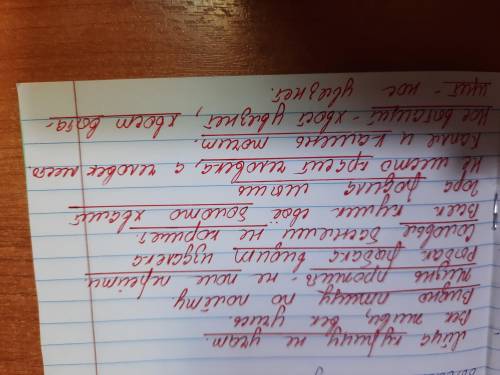 Яйца курицу не учат.
Век живи, век учись.
Видно птицу по полёту
Жизнь прожить - не поле перейти.
Рыбак рыбака видит издалека
Соловья баснями не кормят.
Всяк кулик своё болото хвалит
Гора родила мышь
Не место красит человека, а человек место.
Капля и камень точит.
Нос вытащит - хвост увязнет, хвост выта-
щит - нос увязнет.